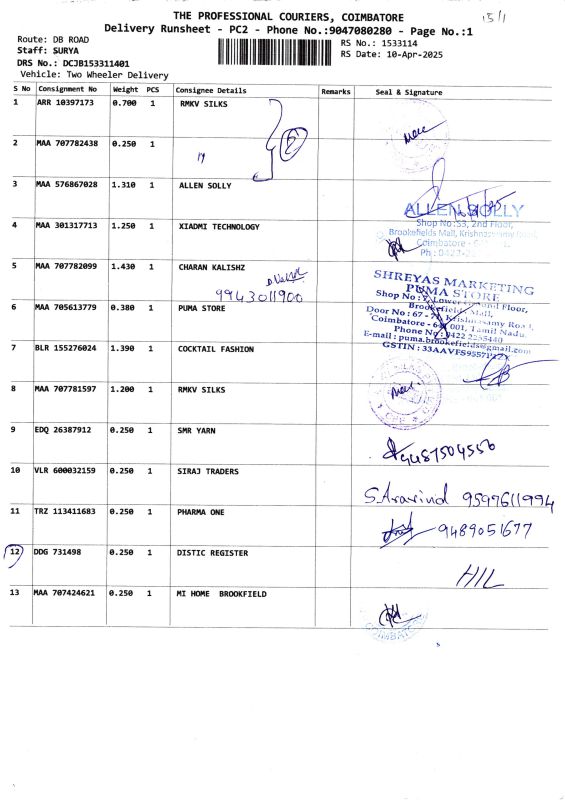 THE PROFESSIONAL COURIERS, COIMBATORE
15/1
Delivery Runsheet - PC2 - Phone No.:9047080280 - Page No.:1
Route: DB ROAD
RS No.: 1533114
Staff: SURYA
RS Date: 10-Apr-2025
DRS No.: DCJB153311401
Vehicle: Two Wheeler Delivery
S No Consignment No Weight PCS Consignee Details Remarks Seal & Signature
1 ARR 10397173 0.700 1 RMKV SILKS
2 MAA 707782438 0.250 1
19
3 MAA 576867028 1.310 1 ALLEN SOLLY
ALLEN SOLLY
Shop No:53, 2nd Floor,
4 MAA 301317713 1.250 1 XIAOMI TECHNOLOGY
Brookefields Mall, Krishnasamy Road,
Coimbatore -
Ph : 0422-
5 MAA 707782099 1.430 1 CHARAN KALISHZ
9943011900
SHREYAS MARKETING
PUMA STORE
Shop No : 7, Lower Ground Floor,
6 MAA 705613779 0.380 1 PUMA STORE
Brookefields Mall,
Door No : 67 - 71, Krishnasamy Road,
Coimbatore - 641 001, Tamil Nadu.
Phone No : 0422 2255440
E-mail : puma.brookefields@gmail.com
7 BLR 155276024 1.390 1 COCKTAIL FASHION
GSTIN : 33AAVFS9557
8 MAA 707781597 1.200 1 RMKV SILKS
9 EDQ 26387912 0.250 1 SMR YARN
9487504556
10 VLR 600032159 0.250 1 SIRAJ TRADERS
S. Aravind 9597611994
11 TRZ 113411683 0.250 1 PHARMA ONE
9489051677
12 DDG 731498 0.250 1 DISTIC REGISTER
HIL
13 MAA 707424621 0.250 1 MI HOME BROOKFIELD
COIMBATORE